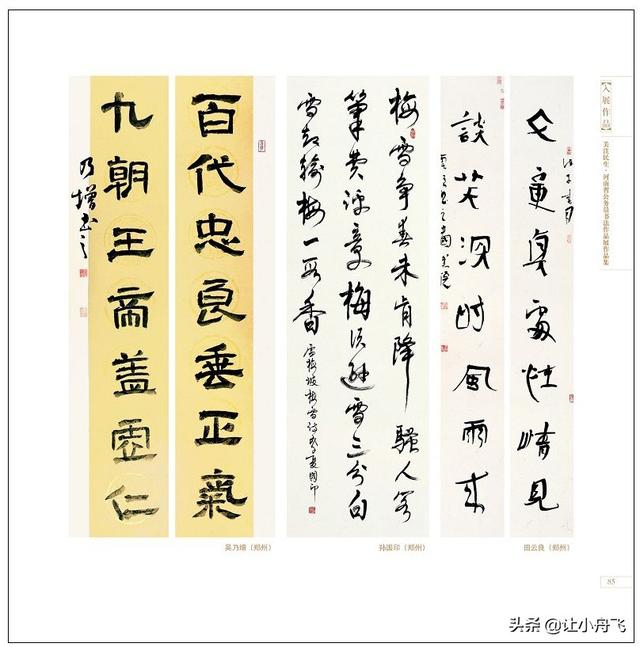 百代忠良垂正氣
九朝王帝盖虛仁
乃增书之
梅雪争春未肯降骚人阁
筆费评章梅须逊雪三分白
雪却输梅一段香
卢梅坡梅雪诗戊子夏國印
文章真處性情見
談笑深时風雨来
吴乃增（郑州）
孙国印（郑州）
田云良（郑州）
【入展作品】
关注民生·河南省公务员书法作品展作品集
85
头条 @让小舟飞